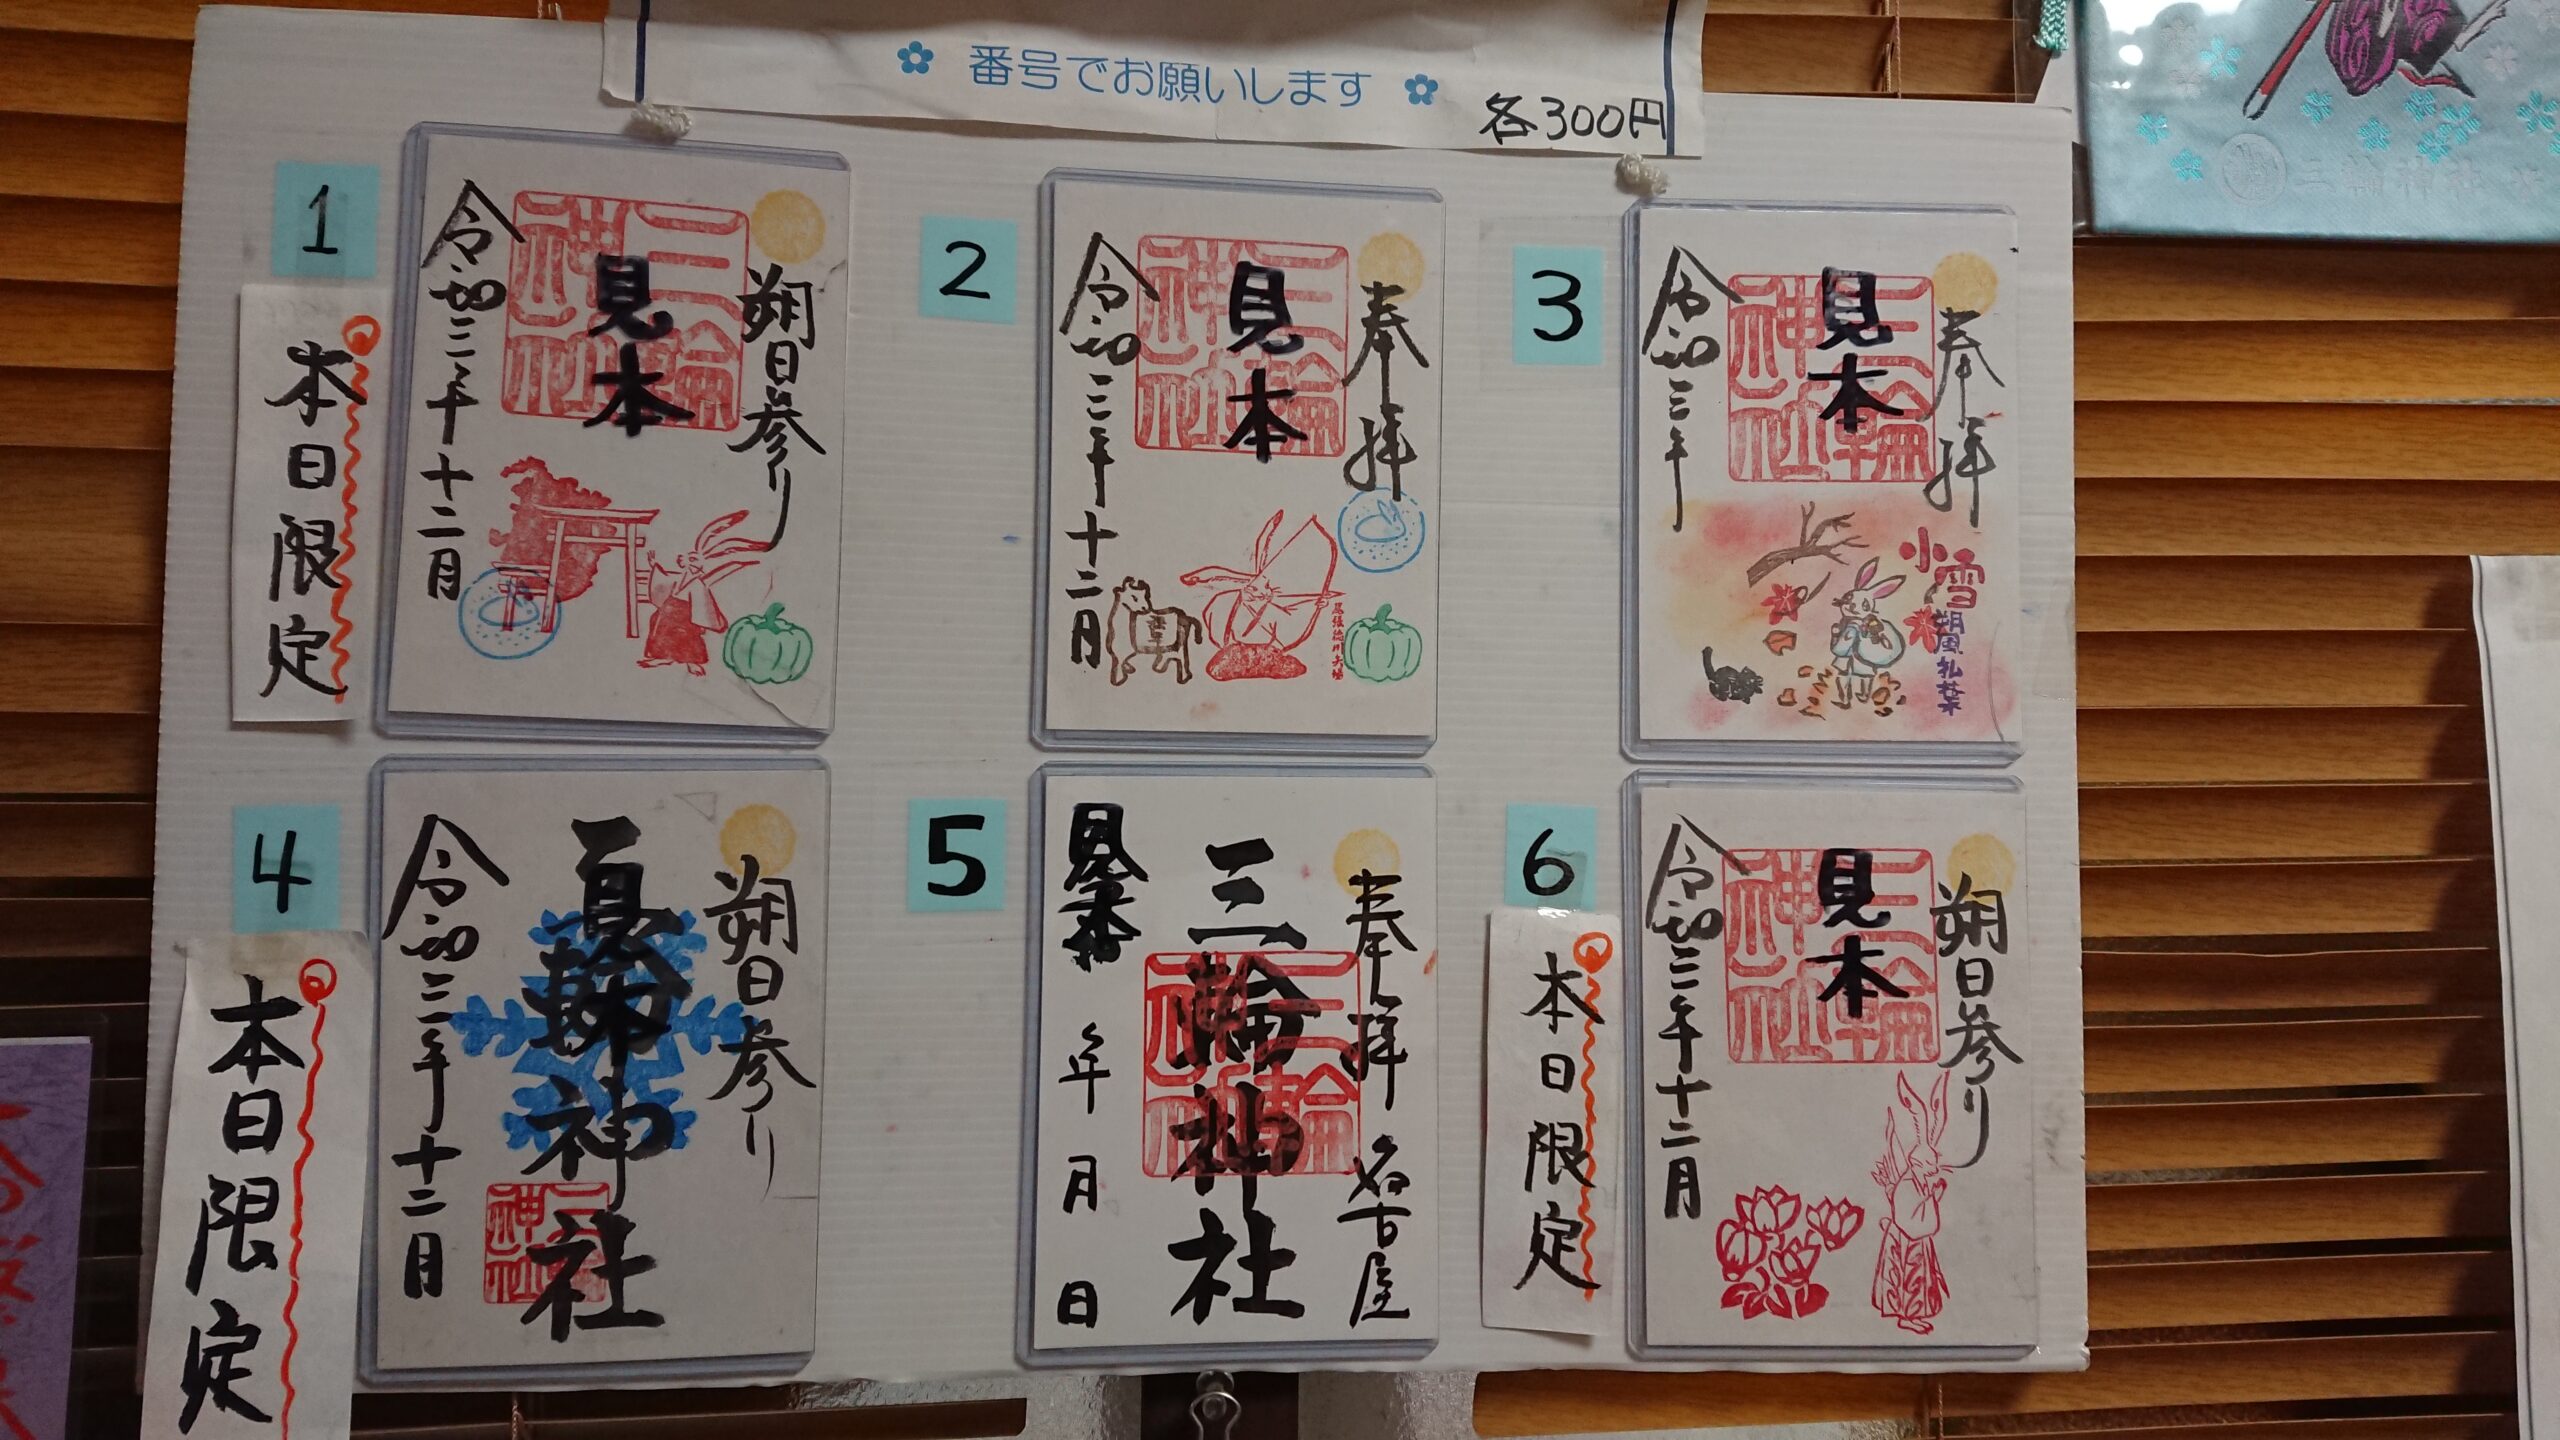 番号でお願いします
各300円
1
本日限定
朔日参り
三輪神社
見本
令和三年十二月
2
奉拝
三輪神社
見本
尾張徳川矢場
令和三年十二月
3
奉拝
三輪神社
見本
小雪
朔風払葉
令和三年
4
本日限定
朔日参り
三輪神社
見本
三輪神社
令和三年十二月
5
奉拝 名古屋
三輪神社
三輪神社
見本
年 月 日
6
本日限定
朔日参り
三輪神社
見本
令和三年十二月
三輪神社